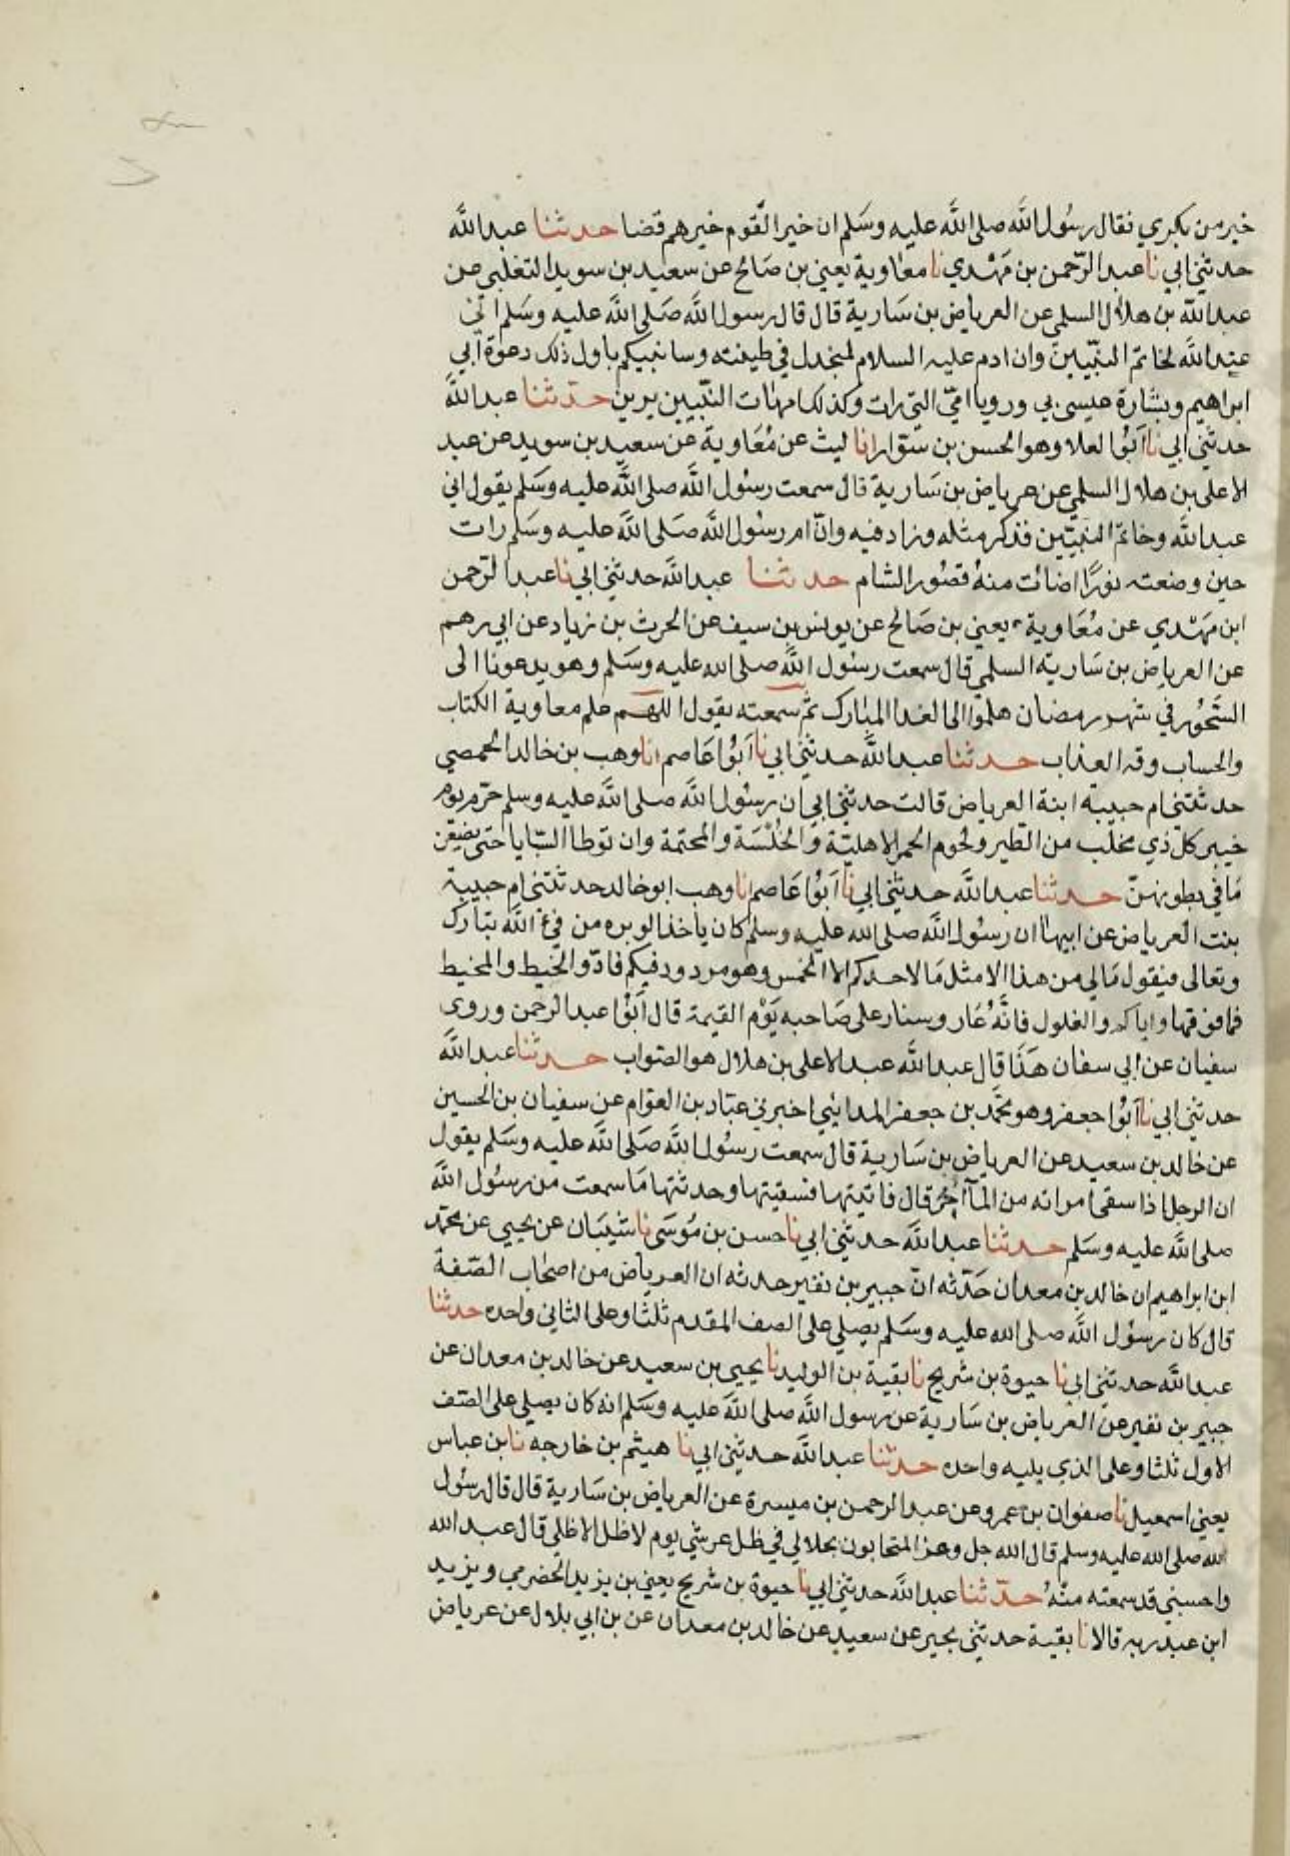 خير من بكري فقال رسُول الله صلى الله عليه وسَلم ان خير القوم خيرهم قضا حدثنا عبد الله
حدثني ابي نا عبد الرّحمن بن مَهْدي نا معاوية يعني بن صَالح عن سعيد بن سويد التغلبي عن
عبد الله بن هلال السلمي عن العرباض بن سَارية قال قال رسول الله صَلى الله عليه وسَلم اني
عند الله لخاتم النبّيين وان ادم عليه السلام لمنجدل في طينته وسانبيكم باول ذلك دعوة ابي
ابراهيم وبشارة عيسى بي ورويا امّي التي رات وكذلك امهات النبّيين يرين حدّثنا عبد الله
حدثني ابي نا اَبُوا لعلا وهو الحسن بن سَوّار انا ليث عن مُعَاوية عن سعيد بن سويد عن عبد
الاعلى بن هلال السلمي عن عرباض بن سَارية قال سمعت رسُول الله صلى الله عليه وسَلم يقول اني
عبد الله وخاتم النبيّين فذكر مثله وزاد فيه وانّ ام رسُول الله صَلى الله عليه وسَلم رات
حين وضعته نورًا اضائت منهُ قصُور الشام حدثنا عبد الله حدثني ابي نا عبد الرّحمن
ابن مَهْدي عن مُعَاوية يعني بن صَالح عن يونس بن سيف عن الحرث بن زياد عن ابي رهم
عن العرباض بن سَارية السلمي قال سمعت رسُول الله صلى الله عليه وسَلم وهو يدعونا الى
السَّحُور في شهر رمضان هلمّوا الى الغدا المبارك ثمّ سمعته يقول اللهم علم معاوية الكتاب
والحساب وقه العذاب حدثنا عبد الله حدثني ابي نا اَبُوا عَاصم انا وهب بن خالد الحمصي
حدثتني ام حبيبة ابنة العرباض قالت حدثني ابي ان رسُول الله صلى الله عليه وسلم حرّم يوم
خيبر كل ذي مخلب من الطير ولحوم الحمر الاهليّة وَالخُلْسَة والمجثمة وان توطا السّبايا حتى يضعن
مَا في بطونهنّ حدثنا عبد الله حدثني ابي نا اَبُوا عَاصم انا وهب ابو خالد حدثتني ام حبيبة
بنت العرباض عن ابيها ان رسُول الله صلى الله عليه وسلم كان ياخذ الوبره من فيء الله تبارك
وتعالى فيقول مَالي من هذا الا مثل مَا لاحدكم الا الخمس وهو مردود فيكم فادّوا الخيط والمخيط
فما فوقها واياكم والغلول فانَّهُ عَار وسنار على صَاحبه يَوْم القيمة قال اَبُوا عبد الرحمن وروى
سفيان عن ابي سفان هَذَا قال عبد الله عبد الاعلى بن هلال هو الصواب حدثنا عبد الله
حدثني ابي نا اَبُوا جعفر وهو محمَّد بن جعفر المدايني اخبرني عبّاد بن العوّام عن سفيان بن الحسين
عن خالد بن سعيد عن العرباض بن سَارية قال سمعت رسُول الله صَلى الله عليه وسَلم يقول
ان الرجل اذا سقى امراته من المآ اُجِرَ قال فاتيتها فسقيتها وحدثتها مَا سمعت من رسُول الله
صلى الله عليه وسَلم حدثنا عبد الله حدثني ابي نا حسن بن مُوسَى نا شيبَان عن يحيى عن محمّد
ابن ابراهيم ان خالد بن معدان حَدّثه انّ جبير بن نفير حدثه ان العرباض من اصحاب الصّفة
قال كان رسُول الله صلى الله عليه وسَلم يصلي على الصف المقدم ثلثا وعلى الثاني واحده حدثنا
عبد الله حدثني ابي نا حيوة بن شريح نا بقية بن الوليد نا يحيى بن سعيد عن خالد بن معدان عن
جبير بن نفير عن العرباض بن سَارية عن رسول الله صلى الله عليه وسَلم انه كان يصلي على الصّف
الاول ثلثا وعلى الذي يليه واحده حدثنا عبد الله حدثني ابي نا هيثم بن خارجه نا بن عباس
يعني اسمعيل نا صفوان بن عمرو عن عبد الرحمن بن ميسرة عن العرباض بن سَارية قال قال رسُول
الله صلى الله عليه وسلم قال الله جل وعز المتحابون بجلالي في ظل عرشي يوم لا ظل الا ظلي قال عبد الله
واحسبني قد سمعته منهُ حدّثنا عبد الله حدثني ابي نا حيوة بن شريح يعني بن يزيد الحضرمي ويزيد
ابن عبد ربه قالا نا بقية حدثني بحير عن سعيد عن خالد بن معدان عن بن ابي بلال عن عرباض